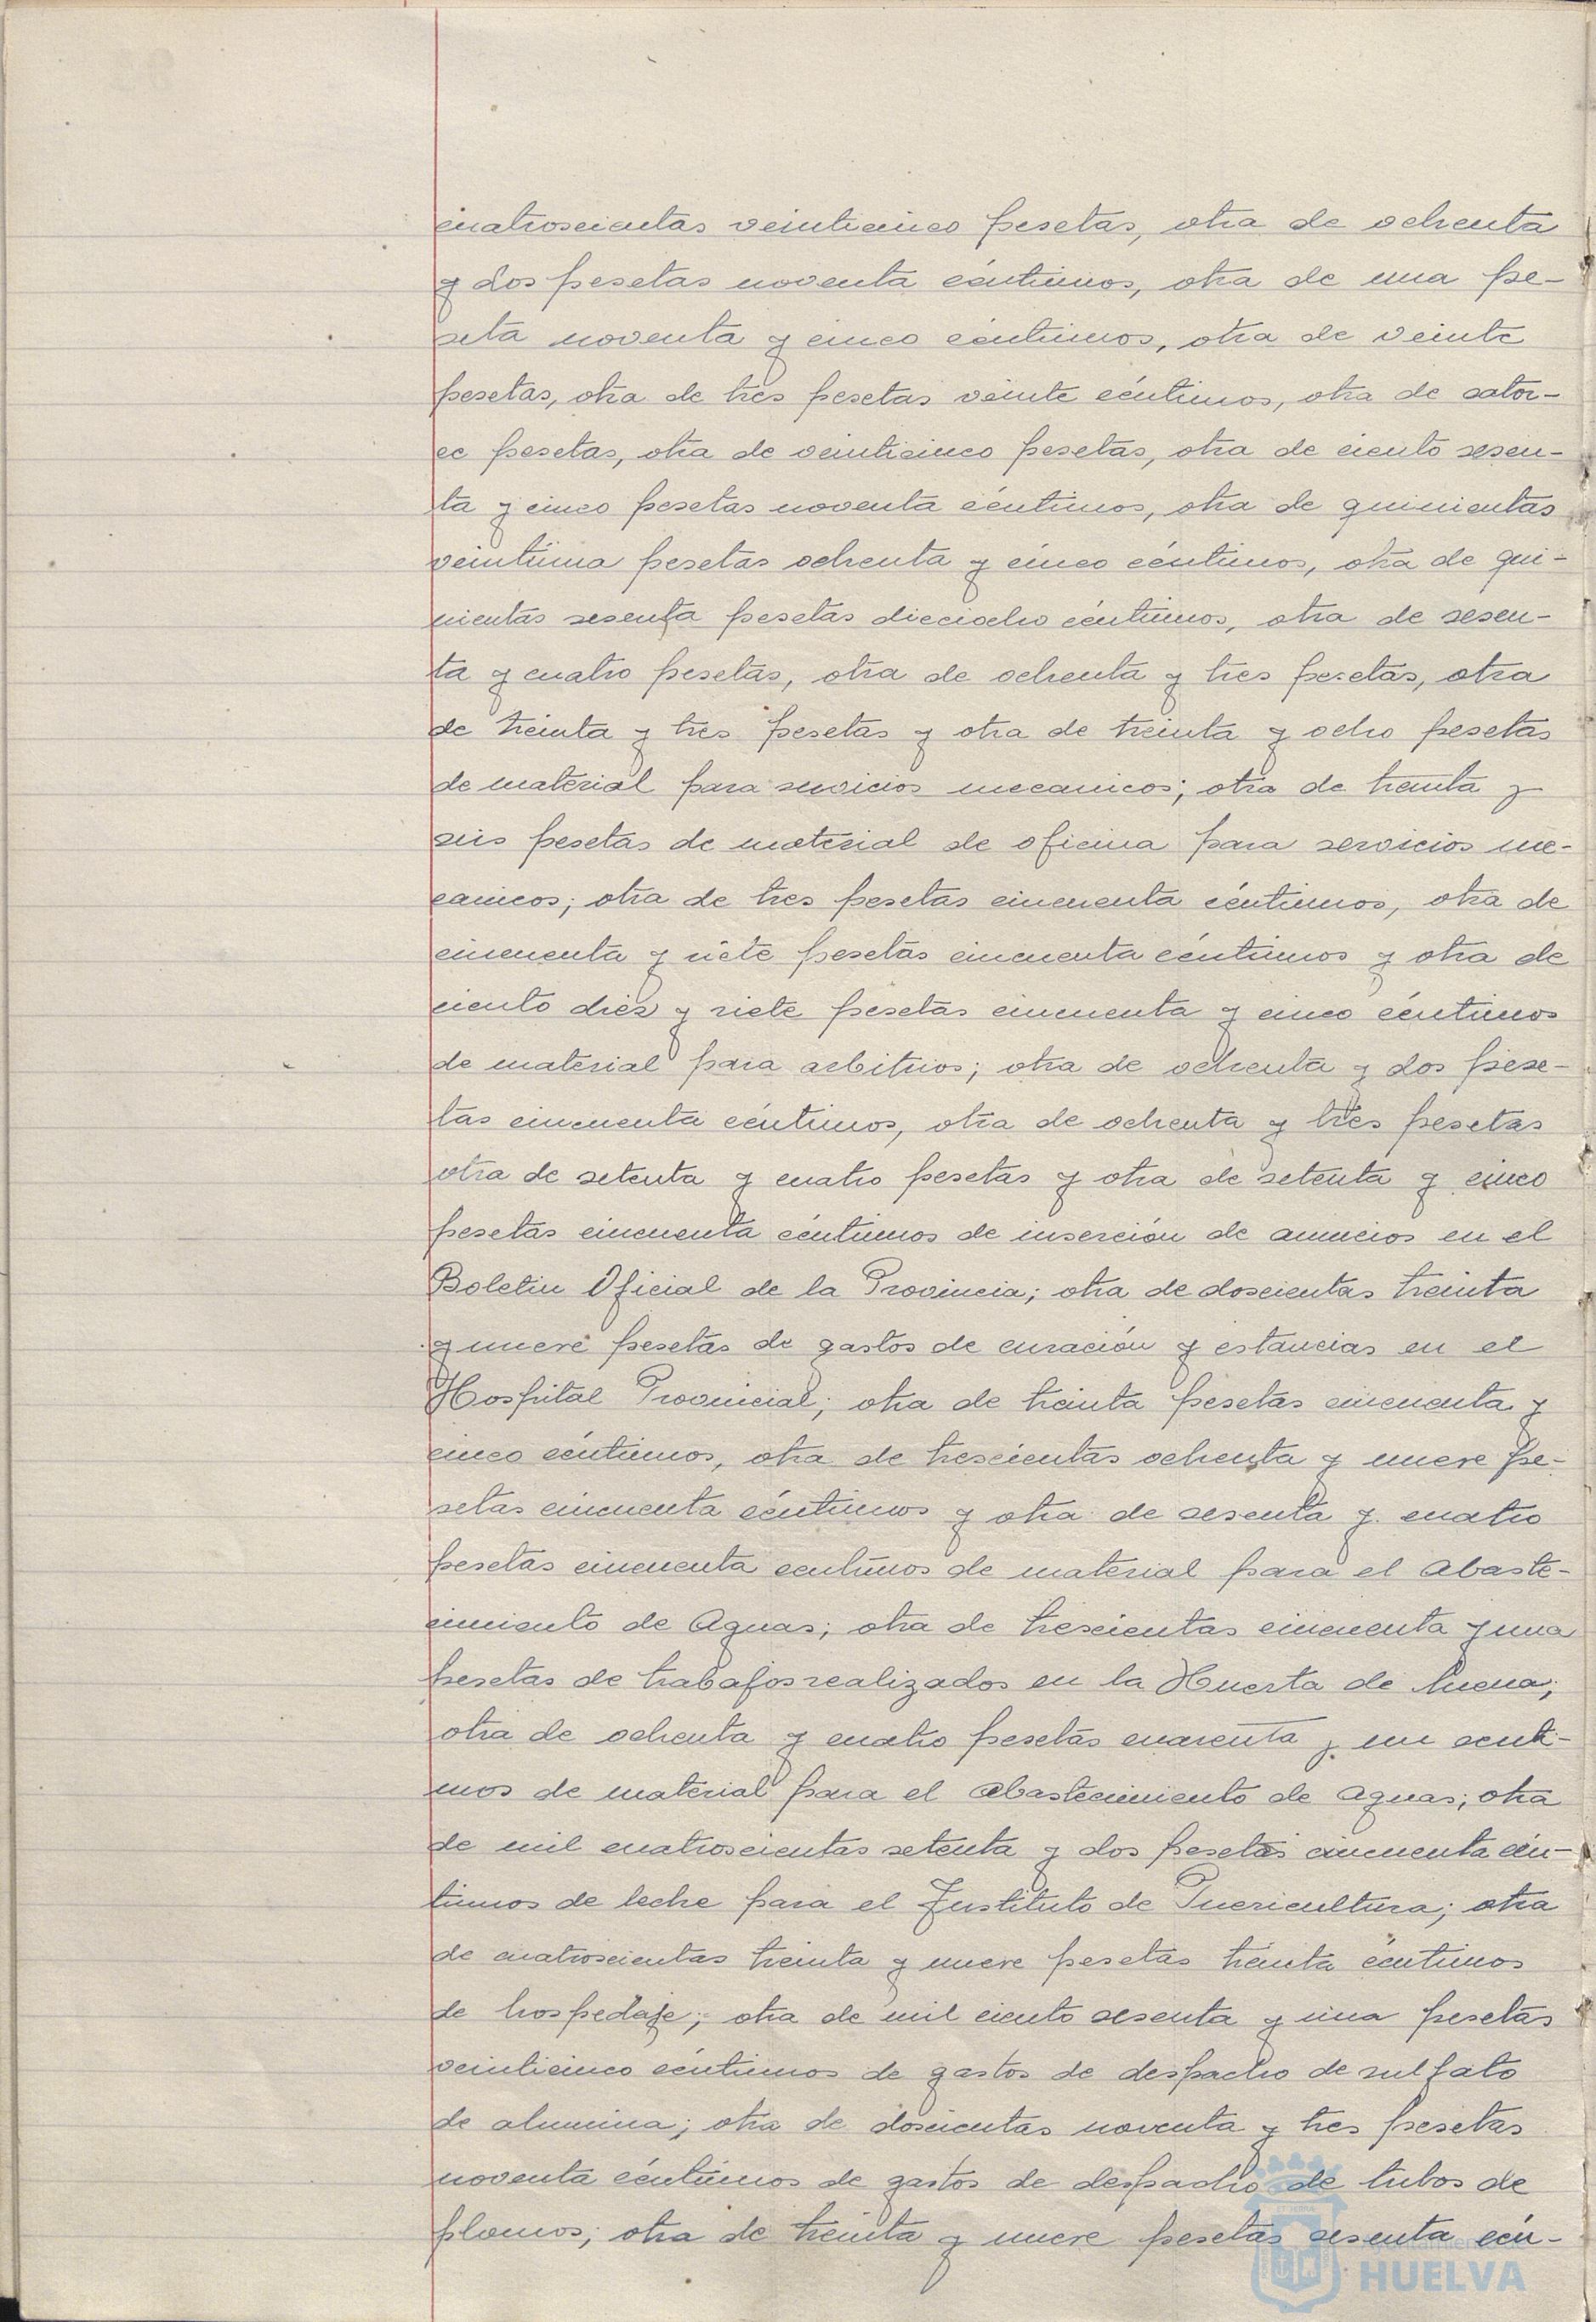 cuatroscientas veinticinco pesetas, otra de ochenta
y dos pesetas noventa céntimos, otra de una pe-
seta noventa y cinco céntimos, otra de veinte
pesetas, otra de tres pesetas veinte céntimos, otra de cator-
ce pesetas, otra de veinticinco pesetas, otra de ciento sesen-
ta y cinco pesetas noventa céntimos, otra de quinientas
veintiuna pesetas ochenta y cinco céntimos, otra de qui-
nientas sesenta pesetas dieciocho céntimos, otra de sesen-
ta y cuatro pesetas, otra de ochenta y tres pesetas, otra
de treinta y tres pesetas y otra de treinta y ocho pesetas
de material para servicios mecanicos; otra de treinta y
seis pesetas de material de oficina para servicios me-
canicos; otra de tres pesetas cincuenta céntimos, otra de
cincuenta y siete pesetas cincuenta céntimos y otra de
ciento diez y siete pesetas cincuenta y cinco céntimos
de material para arbitrios; otra de ochenta y dos pese-
tas cincuenta céntimos, otra de ochenta y tres pesetas
otra de setenta y cuatro pesetas y otra de setenta y cinco
pesetas cincuenta céntimos de inserción de anuncios en el
Boletin Oficial de la Provincia; otra de doscientas treinta
y nueve pesetas de gastos de curación y estancias en el
Hospital Provincial; otra de treinta pesetas cincuenta y
cinco céntimos, otra de trescientas ochenta y nueve pe-
setas cincuenta céntimos y otra de sesenta y cuatro
pesetas cincuenta centimos de material para el Abaste-
cimiento de Aguas; otra de trescientas cincuenta y una
pesetas de trabajos realizados en la Huerta de Mena;
otra de ochenta y cuatro pesetas cuarenta y un centi-
mos de material para el Abastecimiento de Aguas; otra
de mil cuatroscientas setenta y dos pesetas cincuenta cén-
timos de leche para el Instituto de Puericultura; otra
de cuatroscientas treinta y nueve pesetas treinta céntimos
de hospedaje; otra de mil ciento sesenta y una pesetas
veinticinco céntimos de gastos de despacho de sulfato
de alumina; otra de doscientas noventa y tres pesetas
noventa céntimos de gastos de despacho de tubos de
plomos; otra de treinta y nueve pesetas sesenta cén-
HUELVA